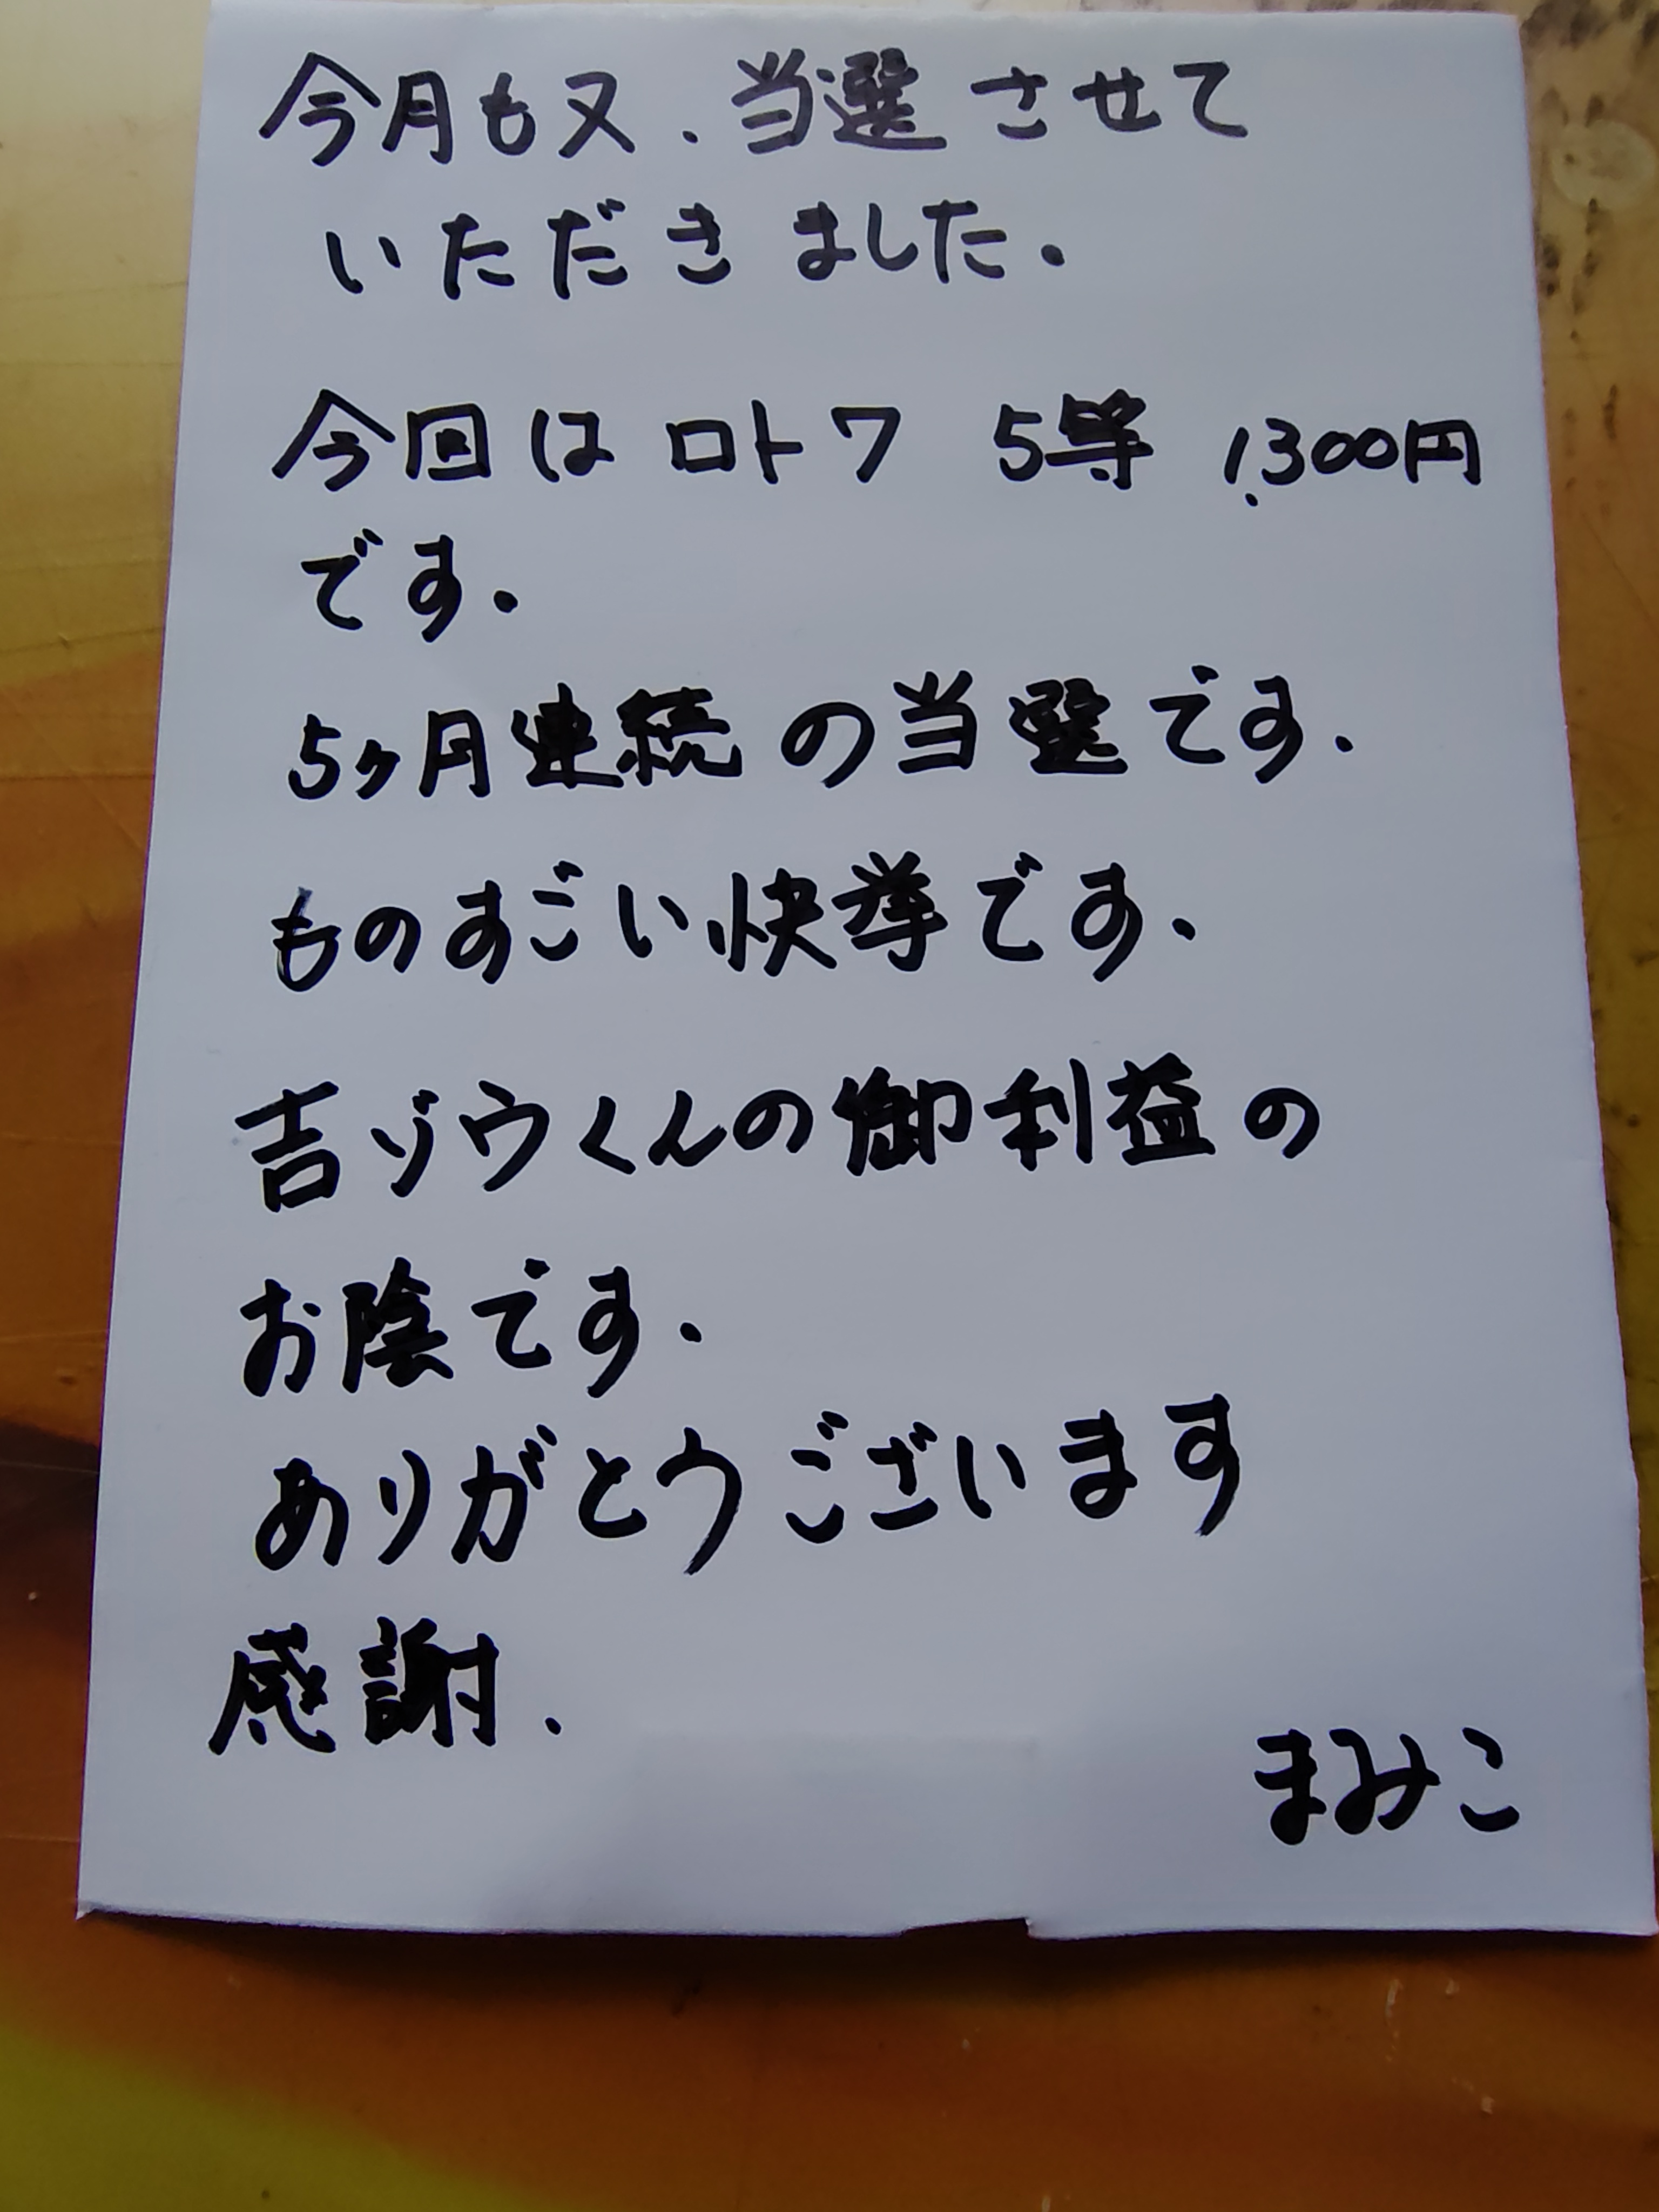 今月も又.当選させて
いただきました.
今回はロト7 5等 1,300円
です.
5ヶ月連続の当選です.
ものすごい快挙です.
吉ゾウくんの御利益の
お陰です.
ありがとうございます
感謝.
まみこ